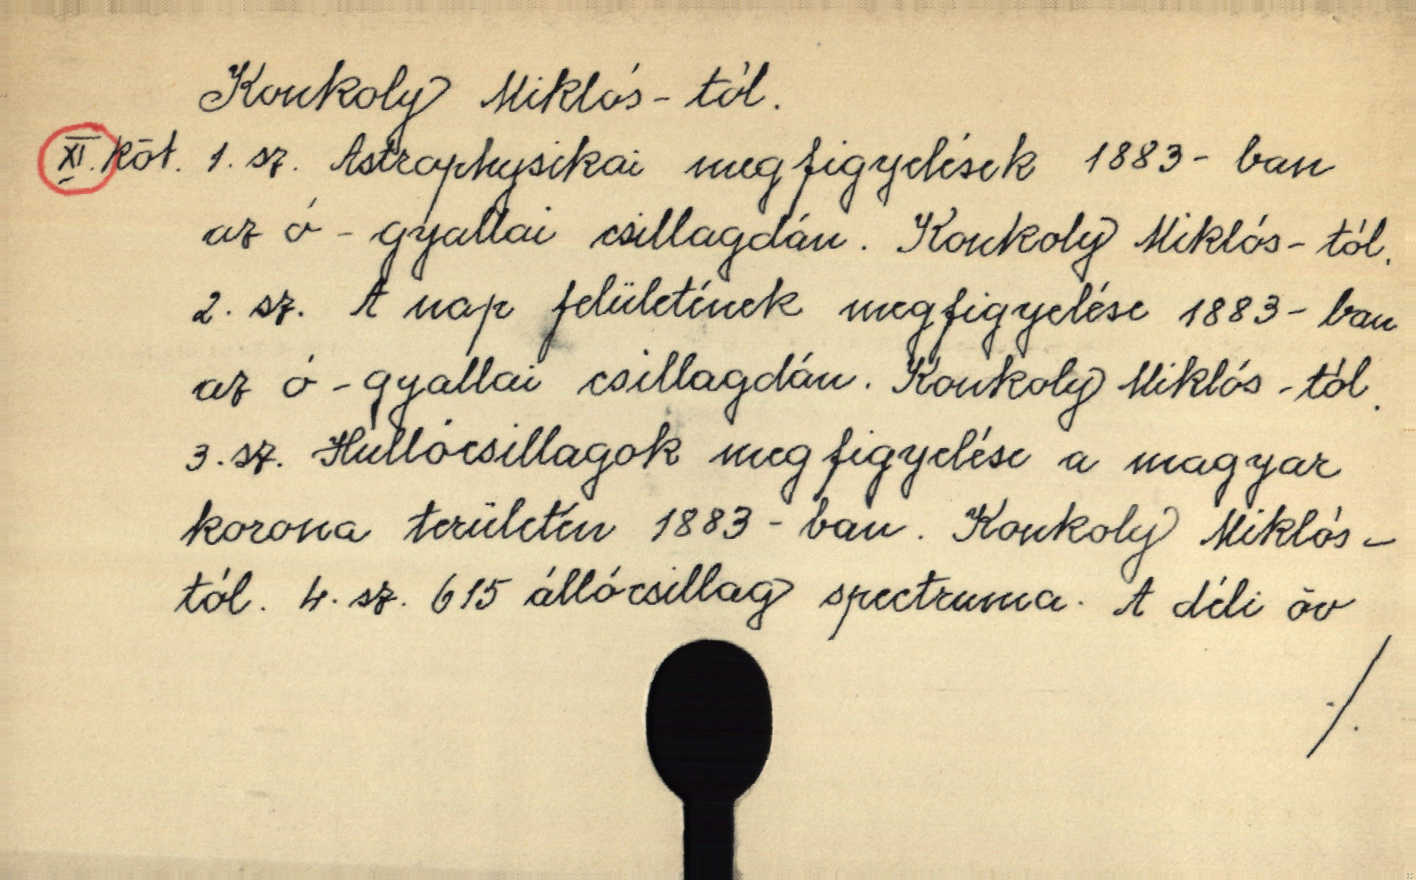 Konkoly Miklós-tól.
XI. köt. 1. sz. Astrophysikai megfigyelések 1883-ban
az ó-gyallai csillagdán. Konkoly Miklós-tól.
2. sz. A nap felületének megfigyelése 1883-ban
az ó-gyallai csillagdán. Konkoly Miklós-tól.
3. sz. Hullócsillagok megfigyelése a magyar
korona területén 1883-ban. Konkoly Miklós-
tól. 4. sz. 615 állócsillag spectruma. A déli öv
./.